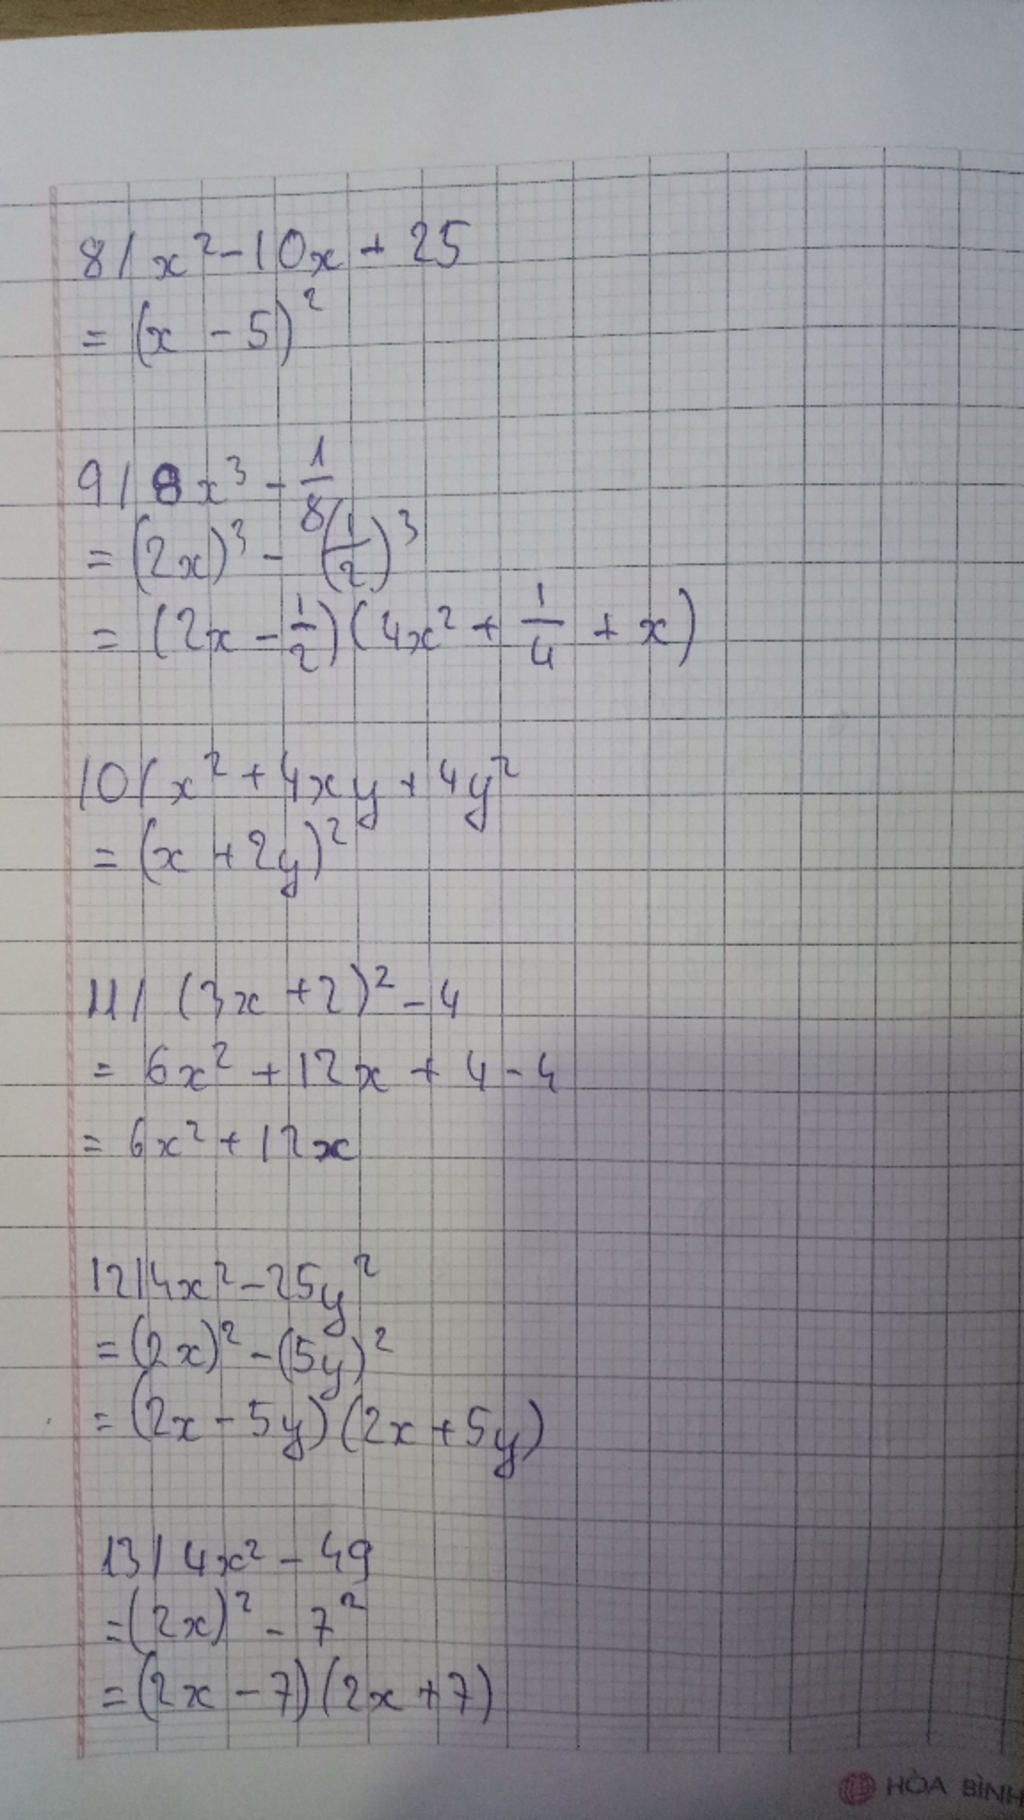 8/ x² - 10x + 25
= (x - 5)²
9/ 8x³ - 1/8
= (2x)³ - (1/2)³
= (2x - 1/2)(4x² + 1/4 + x)
10/ x² + 4xy + 4y²
= (x + 2y)²
11/ (3x + 2)² - 4
= 6x² + 12x + 4 - 4
= 6x² + 12x
12/ 4x² - 25y²
= (2x)² - (5y)²
= (2x - 5y)(2x + 5y)
13/ 4x² - 49
= (2x)² - 7²
= (2x - 7)(2x + 7)
HÒA BÌNH